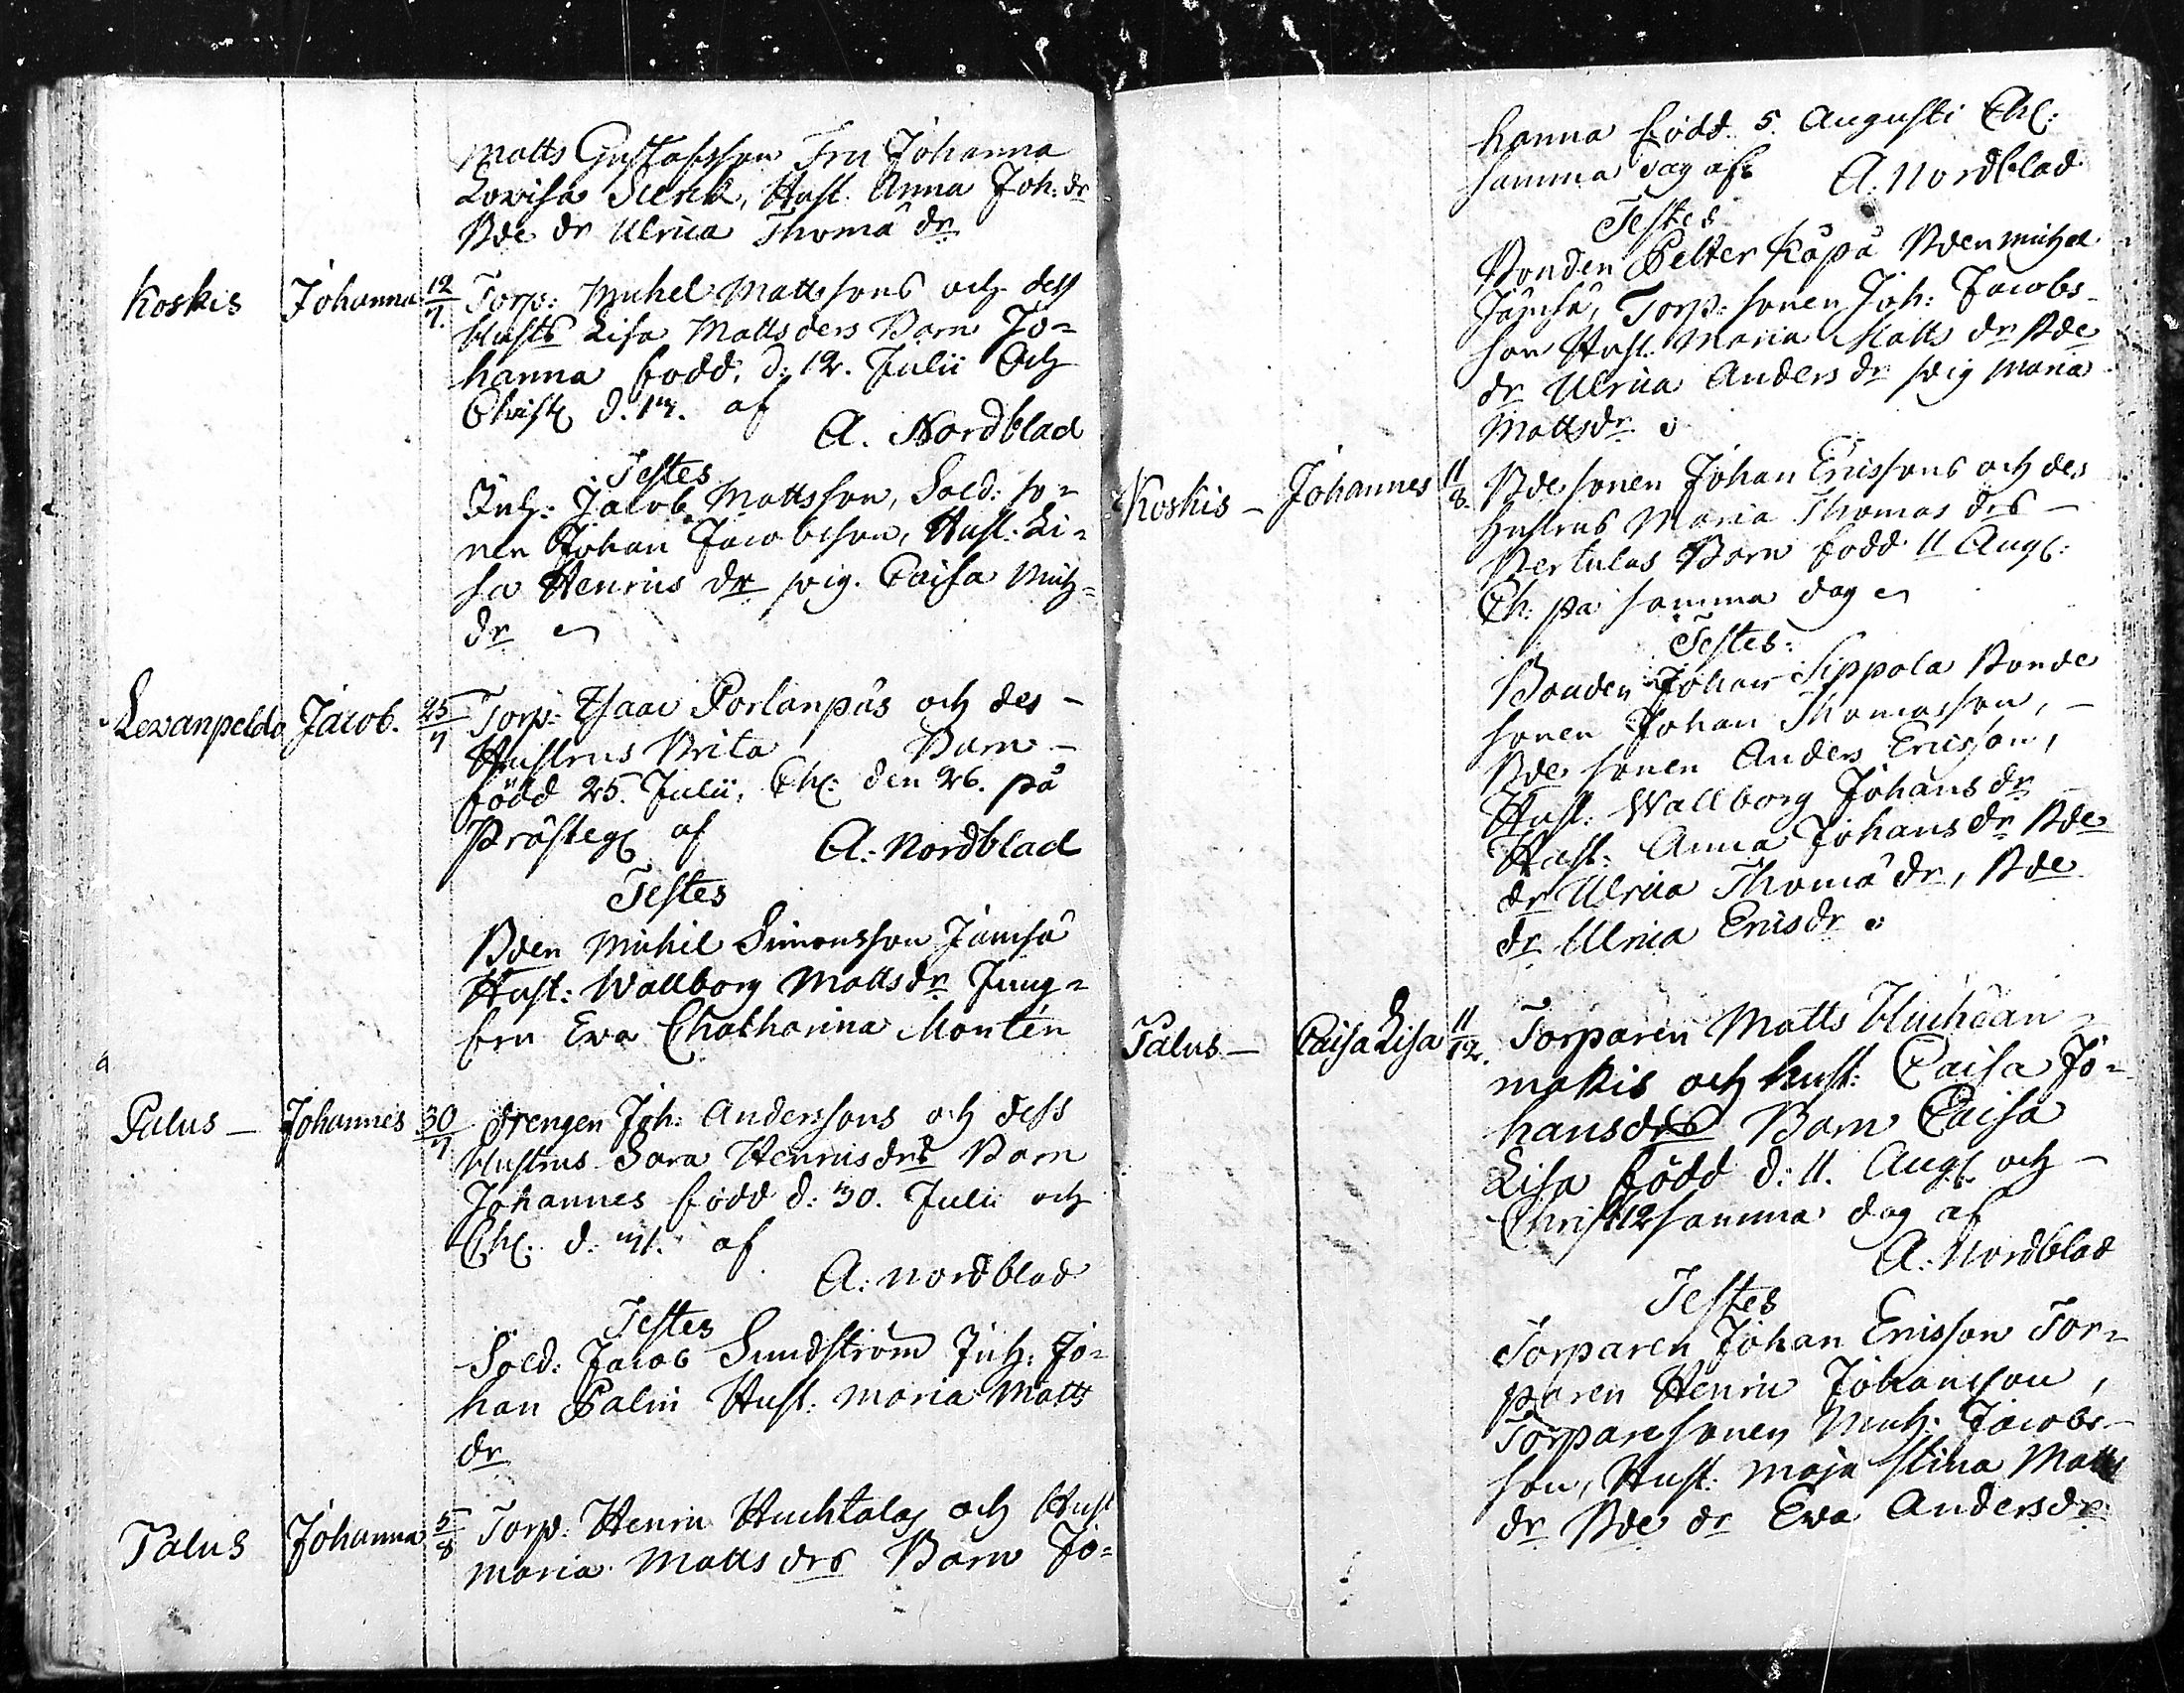 Matts Gustafsson Fru Johanna
Lovisa Senk, Hust. Anna Joh: dr
Bde dr Ulrica Thomæ dr
Koskis Johanna 12/7. Torp: Michel Mattssons och dess
Hust{s} Lisa Matts ders Barn Jo=
hanna född. d. 12. Julii Och
Christ d. 17. af
A. Nordblad
Testes
Inh: Jacob Mattsson, Sold: so=
nen Johan Jacobsson, Hust. Li=
sa Henrics dr pig. Caisa Mich=
dr
Levanpeldo Jacob. 25/7 Torp: Isaac Porlanpäs och des -
Hustrus Brita Barn -
född 25. Julii, Ch: den 26. på
Prösteg af
A: Nordblad
Testes
Bden Michil Simonsson Jämsä
Hust: Wallborg Mattsdr. Jung=
fru Eva Chatharina Montén
Palus - Johannes 30/7 Drengen Joh: Anderssons och dess
Hustrus Sara Henricsdrs Barn
Johannes född d: 30. Julii och
Ch: d. 31. af
A: Nordblad
Testes
Sold: Jacob Sundström Inh: Jo=
han Palin Hust: Maria Matts
dr
Palus Johanna 5/8 Torp: Henric Huchtalas och Hust
Maria Matts drs Barn Jo=
hanna född 5. Augusti Ch:
samma dag af
A: Nordblad
Testes
Bonden Petter Kåpå Bden Michel
Jämsä, Torp: sonen Joh: Jacobs-
son Hust. Maria Matts dr Bde
dr Ulrica Anders dr pig Maria
Mattsdr
Koskis - Johannes 11/8. Bde sonen Johan Ericssons och des
Hustrus Maria Thomas drs -
Pertulas Barn född 11 Aug:
Ch: på samma dag
Testes:
Bonden Johan Sippola Bonde
sonen Johan Thomasson, -
Bde sonen Anders Ericsson,
Hust: Wallborg Johans dr
Hust: Anna Johans dr Bde
dr Ulrica Thomæ dr, Bde
dr Ulrica Ericsdr
Palus - Caisa Lisa 11/12. Torparen Matts Huchdan=
mäkis och hust: Caisa Jo=
hansdrs Barn Caisa
Lisa född d: 11. Aug. och -
Christ 12 samma dag af
A: Nordblad
Testes
Torparen Johan Ericsson Tor=
paren Henric Johansson,
Torparesonen Mich: Jacobs-
son, Hust: Maja Stina Matts
dr Bde dr Eva Andersdr